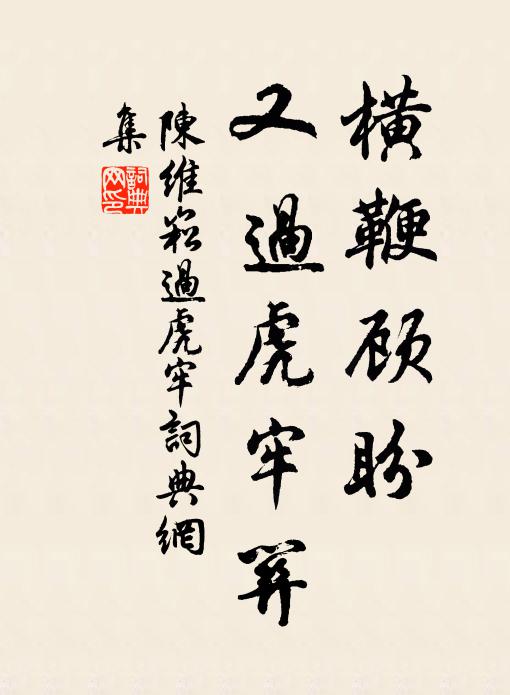 橫鞭顾盼
又過虎牢關
陳維崧過虎牢詞典網
集
詞典網印